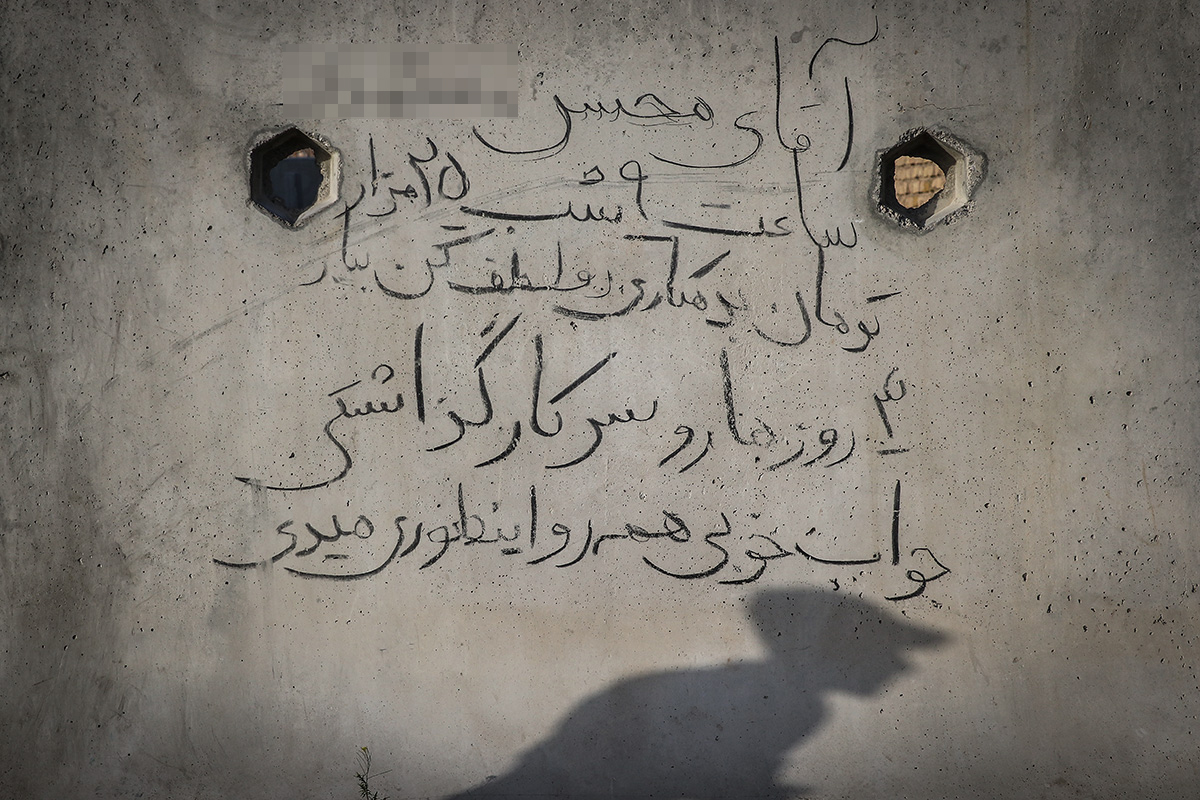 آقای محسن
ساعت ۹ شب ۲۵ هزار
تومان بدهکاری رو لطف کن بیار
۳ روز مارو سر کار گذاشتی
جواب خوبی همه رو اینطوری میدی